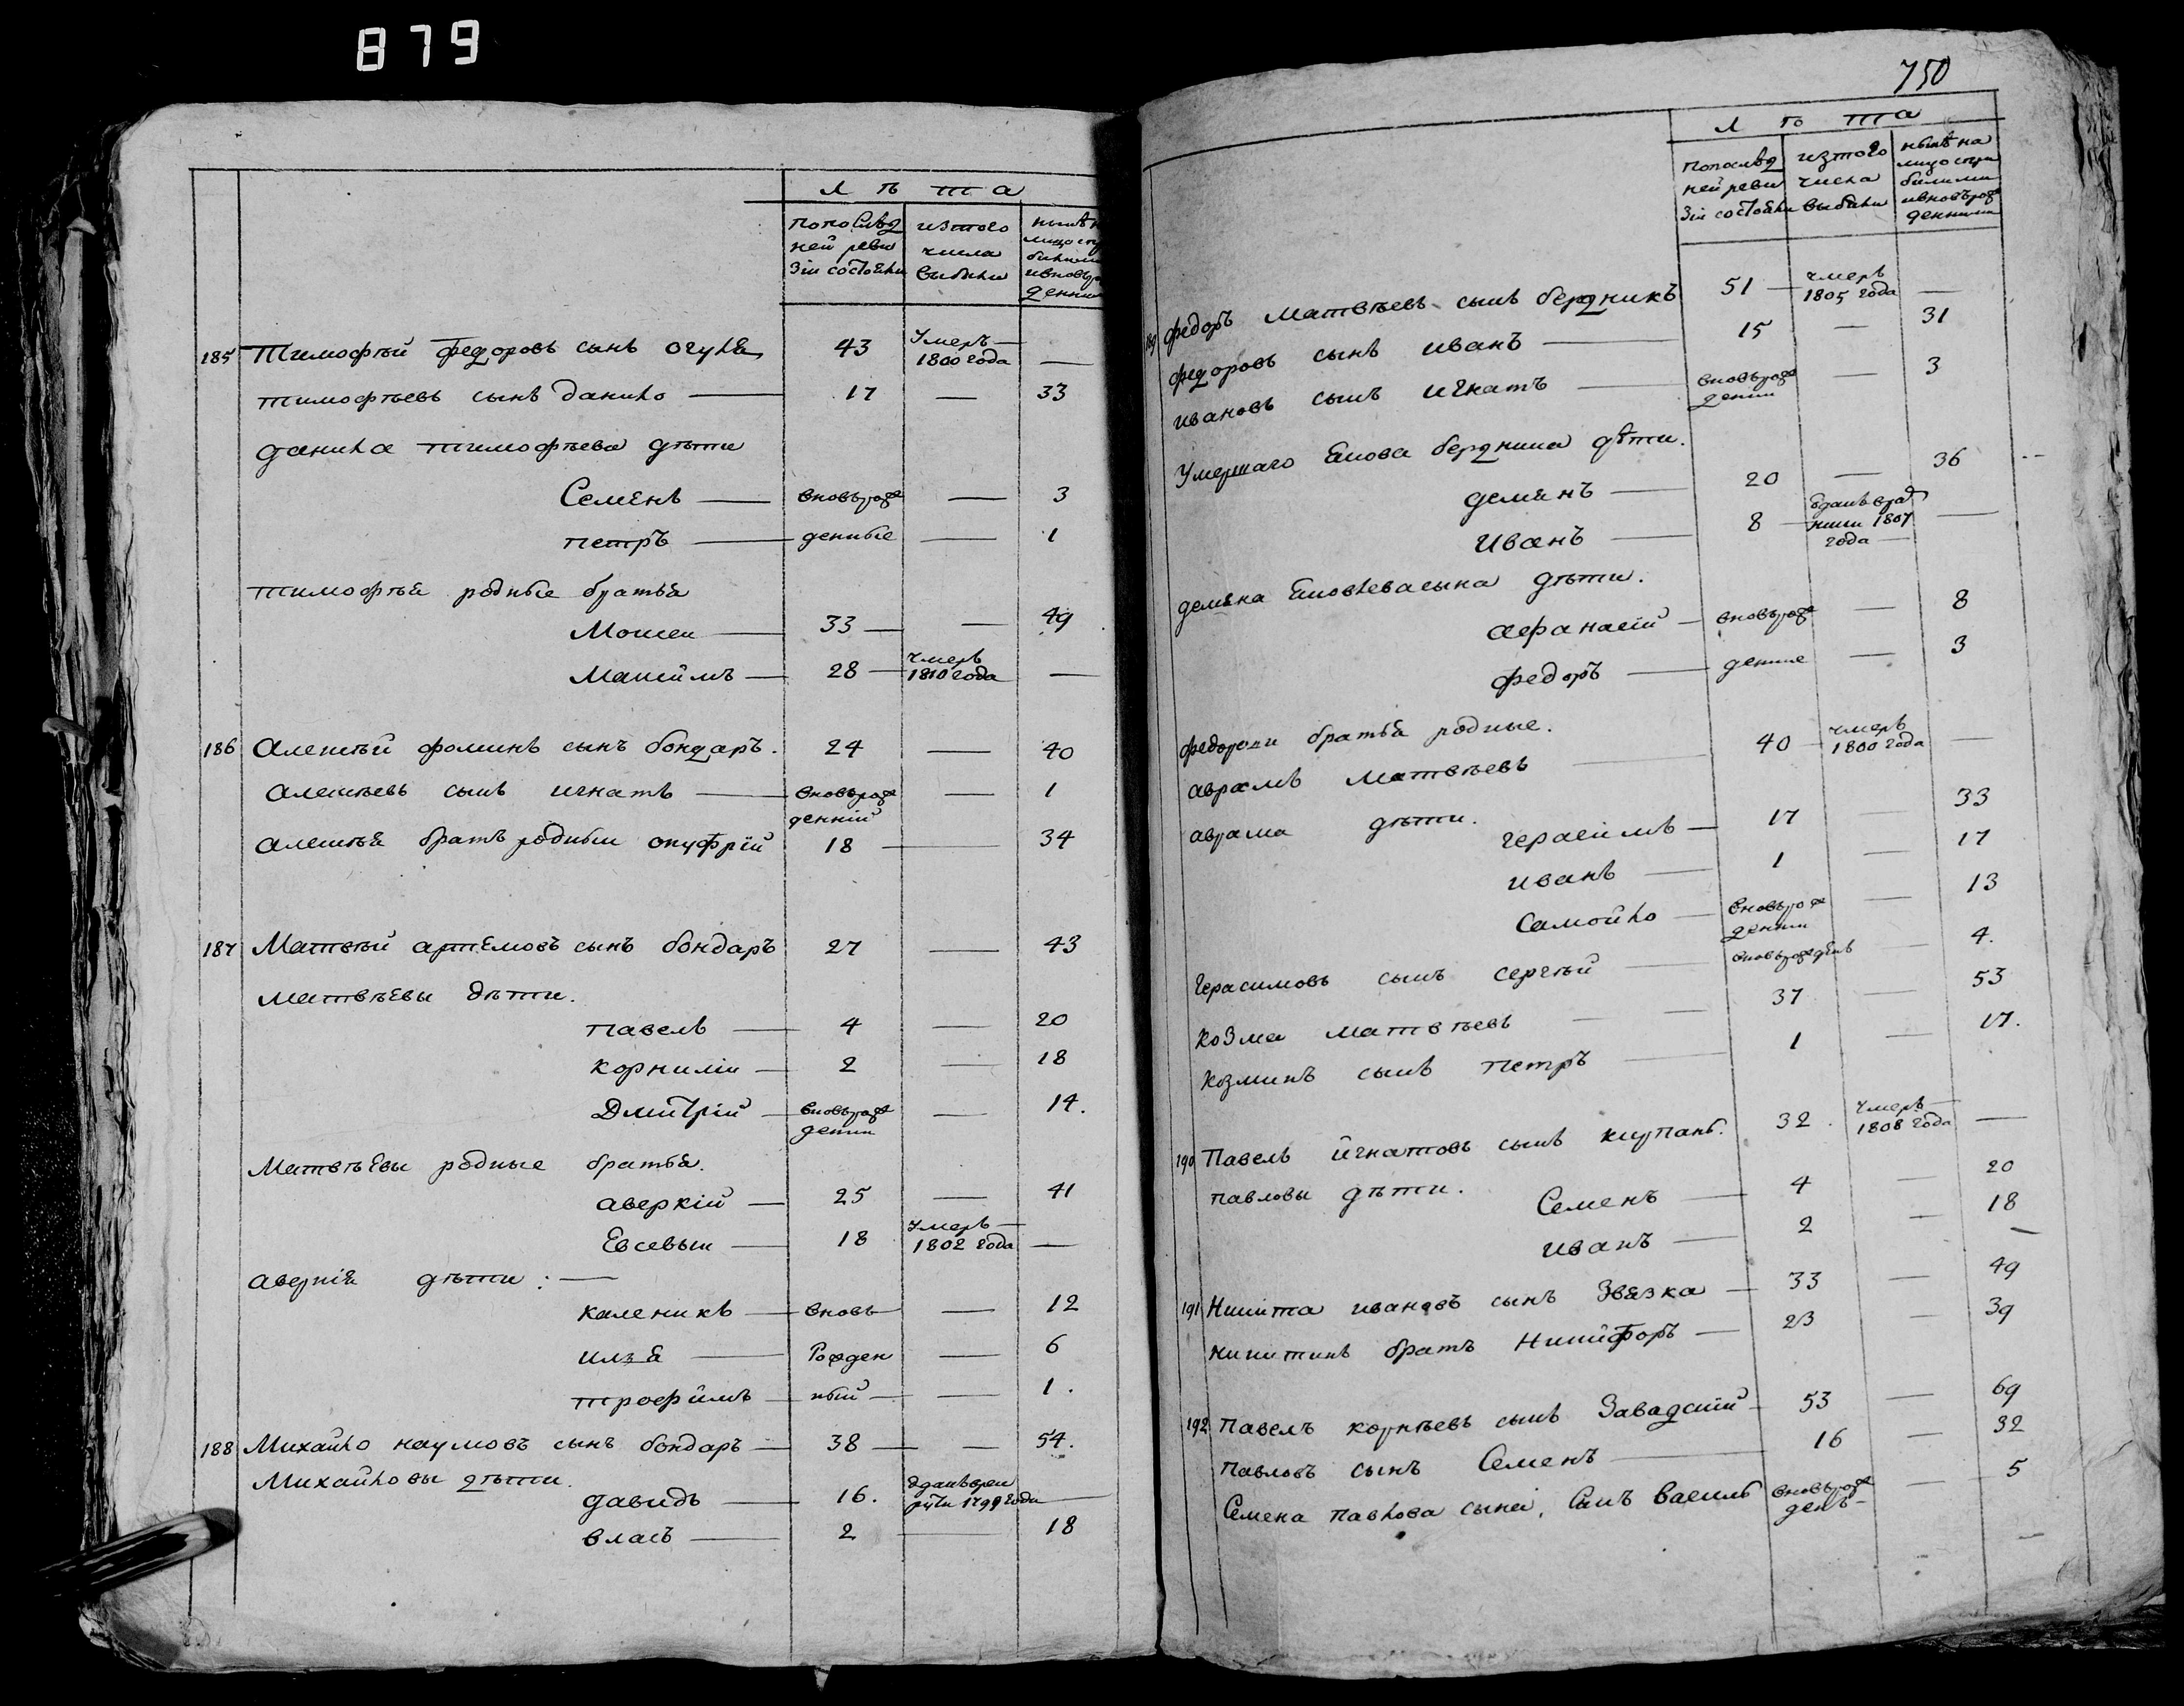 879
лѣта
попослѣд изтого нынѣ н
ней реви числа лицо
зіи состояли выбыли
185 Тимофѣй федоровъ сынъ 43 Умеръ 1800 года —
тимофѣевъ сынъ данило — 17 — 33
данила тимофѣева дѣти
Семенъ — вновьрож — 3
петръ — денные — 1
тимофѣя родные братья
Моисеи — 33 — 49
Максимъ — 28 — умеръ 1810 года —
186 Алексѣй фоминъ сынъ бондаръ. 24 — 40
Алексѣевъ сынъ игнатъ — вновьрож — 1
денній
Алексѣя братъ родныи онуфрій 18 — 34
187 Матвѣй артемовъ сынъ бондаръ 27 — 43
матвѣевы дѣти.
павелъ — 4 — 20
корниліи — 2 — 18
Дмитрій — вновьрож — 14.
денни
Матвѣевы родные братья.
аверкій — 25 — 41
Евсевыи — 18 умеръ 1802 года —
аверкія дѣти : —
каленикъ — вновь — 12
илья — Рожден — 6
трофимъ — ный — 1.
188 Михайло наумовъ сынъ бондаръ — 38 — — 54.
Михайловы дѣти.
давидъ — 16. зданъвреи
круты 1799 года —
власъ — 2 — 18
750
лѣта
попослѣд изтого нынѣ на
ней реви числа лицо
зіи состояли выбыли
ивновьрож
денными
189 федоръ Матвѣевъ сынъ бердникъ 51 — умеръ 1805 года —
федоровъ сынъ иванъ — 15 — 31
ивановъ сынъ игнатъ — вновьрож — 3
денни
Умершаго бердника дѣти.
демянъ — 20 — 36
Иванъ — 8 — 1807 года —
демяна сына дѣти.
афанасій — вновьрож — 8
федоръ — денние — 3
братья родные.
аврамъ матвѣевъ — 40 — умеръ 1800 года —
аврама дѣти.
герасимъ — 17 — 33
иванъ — 1 — 17
Самойло — вновьрож — 13
денни
Герасимовъ сынъ сергѣй — вновьрожденъ — 4.
козма матвѣевъ — — 37 — 53
козминъ сынъ петръ — 1 — 17.
190 Павелъ игнатовъ сынъ 32. умеръ — 1808 года —
павловы дѣти.
Семенъ — 4 — 20
иванъ — 2 — 18
—
191 Никита ивановъ сынъ Звязка — 33 — 49
никитинъ братъ Никифоръ — 23 — 39
192 павелъ корнѣевъ сынъ Завадскій — 53 — 69
павловъ сынъ Семенъ — 16 — 32
Семена павлова сына, Сынъ василь вновьрож — 5
денъ —